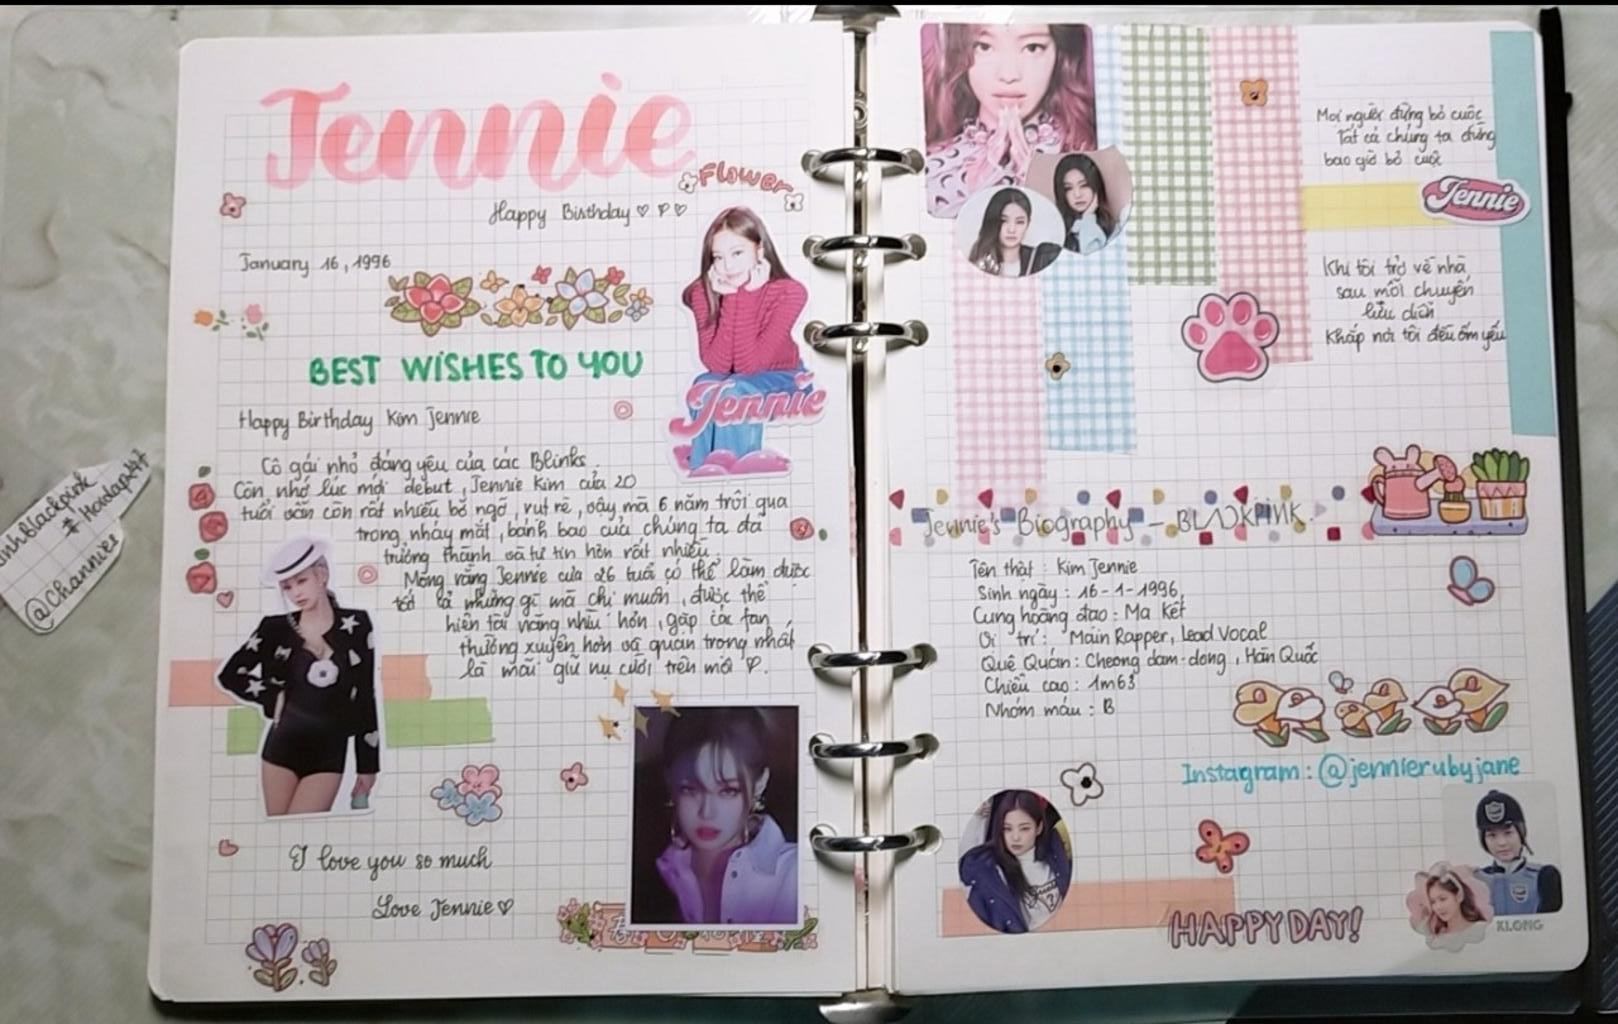 Jennie
Flower
Happy Birthday
January 16, 1996
BEST WISHES TO YOU
Happy Birthday Kim Jennie
Jennie
Cô gái nhỏ đáng yêu của các Blinks.
Còn nhớ lúc mới debut, Jennie Kim của 20
tuổi vẫn còn rất nhiều bỡ ngỡ, rụt rè, vậy mà 6 năm trôi qua
trong nháy mắt, bánh bao của chúng ta đã
trưởng thành và tự tin hơn rất nhiều.
Mong rằng Jennie của 26 tuổi có thể làm được
tất cả những gì mà chị muốn, được thể
hiện tài năng nhìu hơn, gặp các fan
thường xuyên hơn và quan trọng nhất
là mãi giữ nụ cười trên môi
I love you so much
Love Jennie
Mọi người đừng bỏ cuộc
Tất cả chúng ta đừng
bao giờ bỏ cuộc
Jennie
Khi tôi trở về nhà
sau mỗi chuyến
lưu diễn
Khắp nơi tôi đều ốm yếu
Jennie's Biography - BLACKPINK
Tên thật : Kim Jennie
Sinh ngày : 16-1-1996
Cung hoàng đạo : Ma Kết
Vị trí : Main Rapper, Lead Vocal
Quê Quán : Cheong dam-dong, Hàn Quốc
Chiều cao : 1m63
Nhóm máu : B
Instagram : @jennierubyjane
HAPPY DAY!
KLONG
@Channies